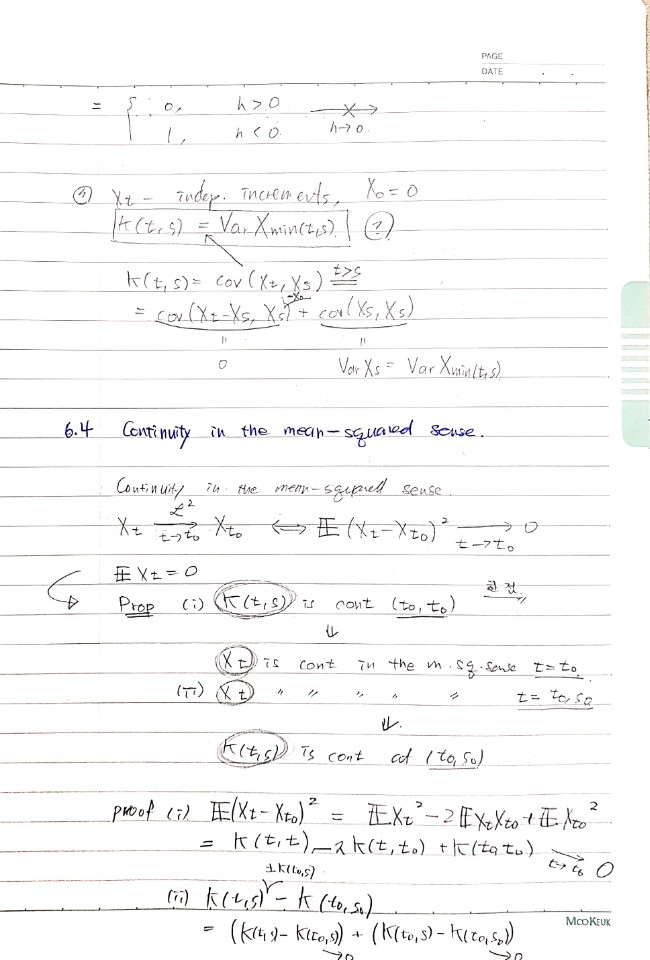 PAGE
DATE . .
= { 0, h > 0 →
1, h < 0. h→0.
③ Xt - indep. increments, X₀ = 0
K(t,s) = Var Xmin(t,s) (?)
K(t,s) = cov(Xt, Xs) t>s
= cov(Xt-Xs, Xs) + cov(Xs, Xs)
-X₀
" "
0 Var Xs = Var Xmin(t,s)
6.4 Continuity in the mean-squared sense.
Continuity in the mean-squared sense.
Xt →(L², t→t₀) Xt₀ ⟺ 𝔼(Xt-Xt₀)² →(t→t₀) 0
𝔼Xt = 0
Prop (i) K(t,s) is cont (t₀,t₀) 한 점
⇓
Xt is cont in the m.sq.sense t=t₀
(ii) Xt " " " " " t=t₀,s₀
⇓.
K(t,s) is cont at (t₀,s₀)
proof (i) 𝔼(Xt-Xt₀)² = 𝔼Xt² - 2𝔼XtXt₀ + 𝔼Xt₀²
= K(t,t) - 2K(t,t₀) + K(t₀,t₀) →(t→t₀) 0
±K(t₀,s)
(ii) K(t,s) - K(t₀,s₀)
= (K(t,s) - K(t₀,s)) + (K(t₀,s) - K(t₀,s₀))
→0 →0
MOOKEUK